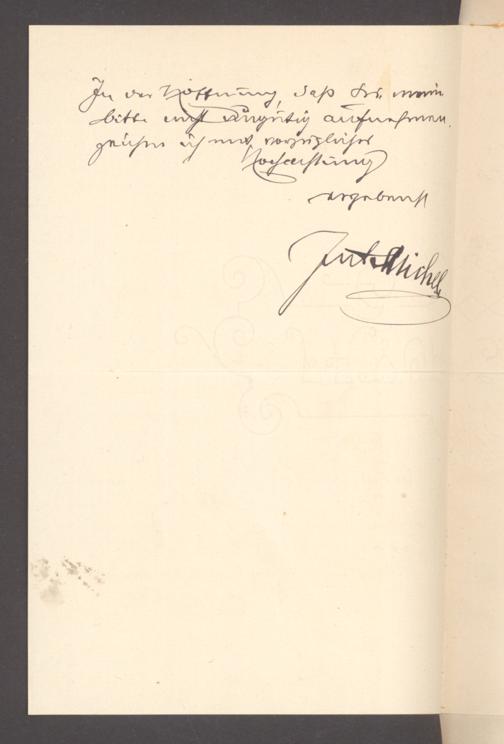 In der Hoffnung, daß Sie meine
bitte nicht ungütig aufnehmen,
zeichne ich mit vorzüglicher
Hochachtung
ergebenst
Michel